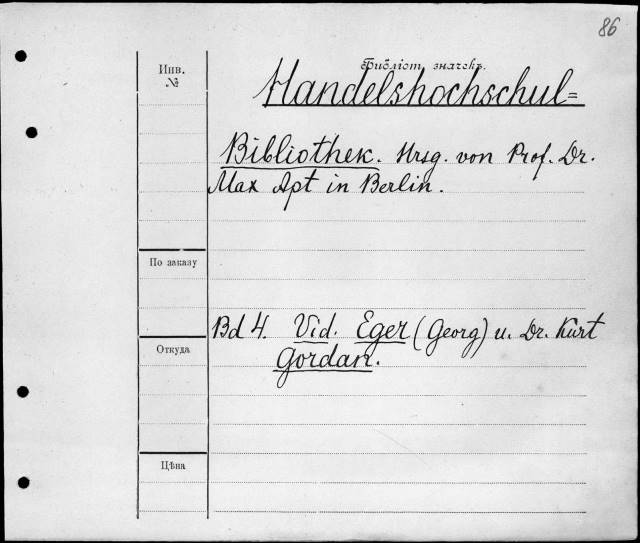 86
Библіот. значекъ.
Инв.
№
Handelshochschul=
Bibliothek. Hrsg. von Prof. Dr.
Max Apt in Berlin.
По заказу
Bd 4. Vid. Eger (Georg) u. Dr. Kurt
Gordan.
Откуда
Цѣна